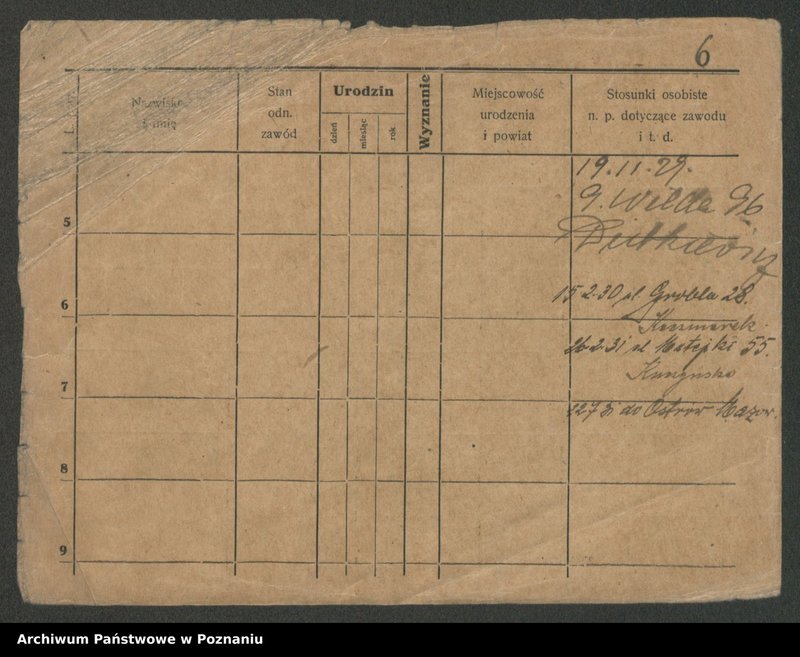 6
L.
Nazwisko
i imię
Stan
odn.
zawód
Urodzin
dzień
miesiąc
rok
Wyznanie
Miejscowość
urodzenia
i powiat
Stosunki osobiste
n. p. dotyczące zawodu
i t. d.
19.11.29.
G. Wilda 96
5
15.2.30 ul. Grobla 28.
6
Kaczmarek.
26.2.31 ul Matejki 55.
7
do Ostrów Mazow.
8
9
Archiwum Państwowe w Poznaniu